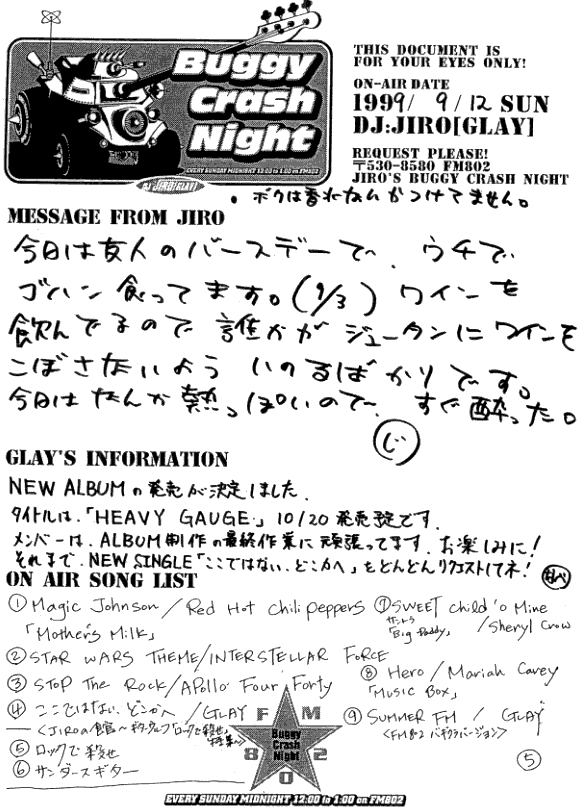 Buggy
Crash
Night
EVERY SUNDAY MIDNIGHT 12:00 to 1:00 on FM802
DJ JIRO[GLAY]
THIS DOCUMENT IS
FOR YOUR EYES ONLY!
ON-AIR DATE
1999/ 9/12 SUN
DJ:JIRO[GLAY]
REQUEST PLEASE!
〒530-8580 FM802
JIRO'S BUGGY CRASH NIGHT
・ボクは香水なんかつけてません。
MESSAGE FROM JIRO
今日は友人のバースデーで、ウチで
ゴハン食ってます。(9/3) ワインを
飲んでるので誰かがジュータンにワインを
こぼさないよういのるばかりです。
今日はなんか熱っぽいので、すぐ酔った。
じ
GLAY'S INFORMATION
NEW ALBUMの発売が決定しました.
タイトルは、「HEAVY GAUGE」10/20発売予定です.
メンバーは、ALBUM制作の最終作業に頑張ってます.お楽しみに!
それまで、NEW SINGLE「ここではない、どこかへ」をどんどんリクエストしてネ!
ON AIR SONG LIST
①Magic Johnson/Red Hot Chili Peppers
「Mother's Milk」
②STAR WARS THEME/INTERSTELLAR FORCE
③STOP The Rock/APollo Four Forty
④ここではない、どこかへ/GLAY
⑤ロックで殺せ
⑥サンダースギター
⑦SWEET Child 'o Mine
サントラ
「Big Daddy」 /Sheryl Crow
⑧Hero/Mariah Carey
「Music Box」
⑨SUMMER FM / GLAY
<FM802 バギクラバージョン>
⑤
F M
8 0 2
Buggy
Crash
Night
EVERY SUNDAY MIDNIGHT 12:00 to 1:00 on FM802